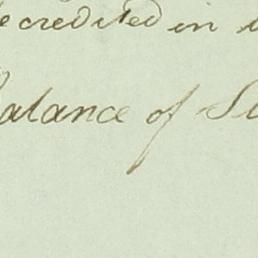 credited in
Balance of